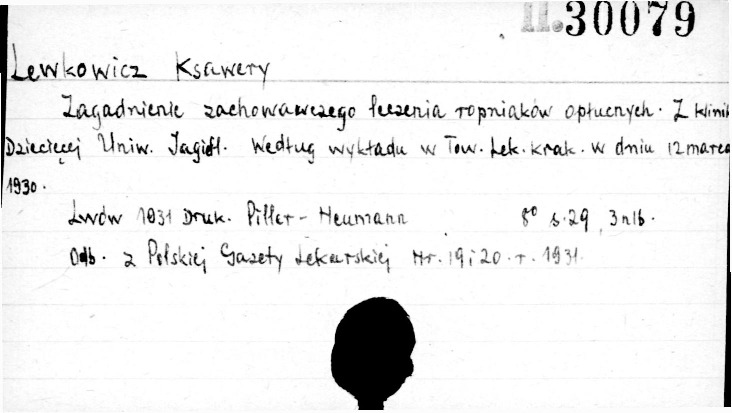 II.30079
Lewkowicz Ksawery
Zagadnienie zachowawczego leczenia ropniaków opłucnych. Z klinik
Dziecięcej Uniw. Jagiell. Według wykładu w Tow. Lek. Krak. w dniu 12 marca
1930.
Lwów 1931 Druk. Piller-Neumann 8° s. 29, 3 nlb.
Odb. z Polskiej Gazety Lekarskiej Nr. 19 i 20. r. 1931.